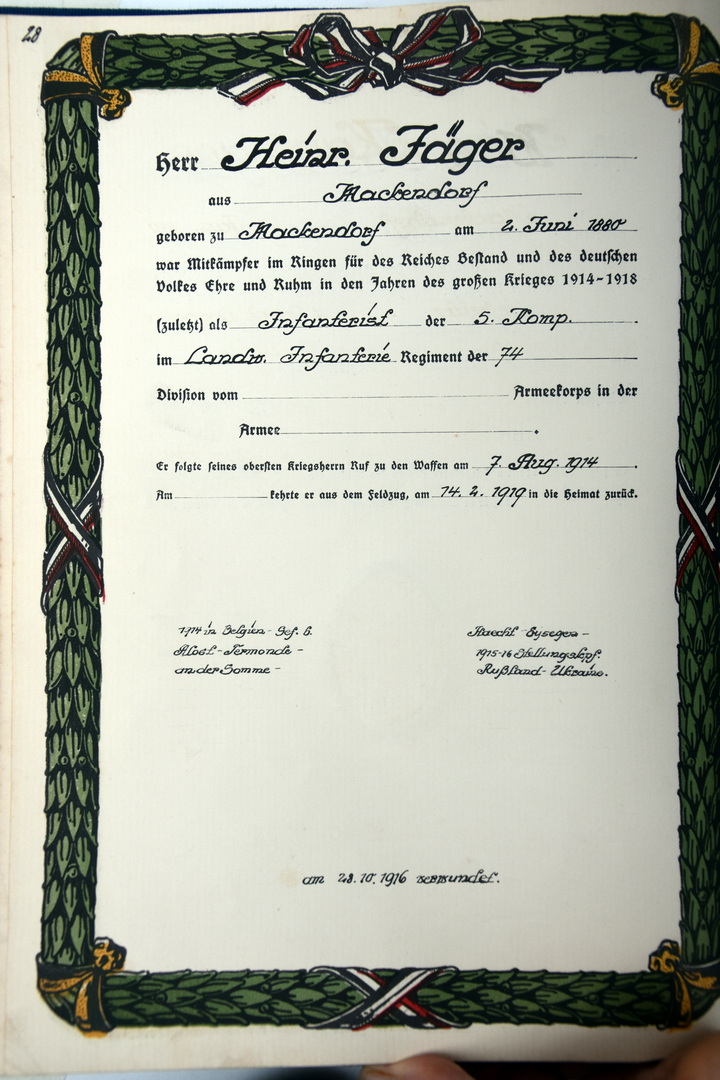 28
Herr Heinr. Jäger
aus Mackendorf
geboren zu Mackendorf am 2. Juni 1880
war Mitkämpfer im Ringen für des Reiches Bestand und des deutschen
Volkes Ehre und Ruhm in den Jahren des großen Krieges 1914-1918
(zuletzt) als Infanterist der 5. Komp.
im Landw. Infanterie Regiment der 74
Division vom Armeekorps in der
Armee.
Er folgte seines obersten Kriegsherrn Ruf zu den Waffen am 7. Aug. 1914.
Am kehrte er aus dem Feldzug, am 14. 2. 1919 in die Heimat zurück.
1914 in Belgien - Gef. b.
Alost - Termonde -
an der Somme -
Haecht - Eysegen -
1915-16 Stellungskpf.
Rußland - Ukraine.
am 28. 10. 1916 verwundet.